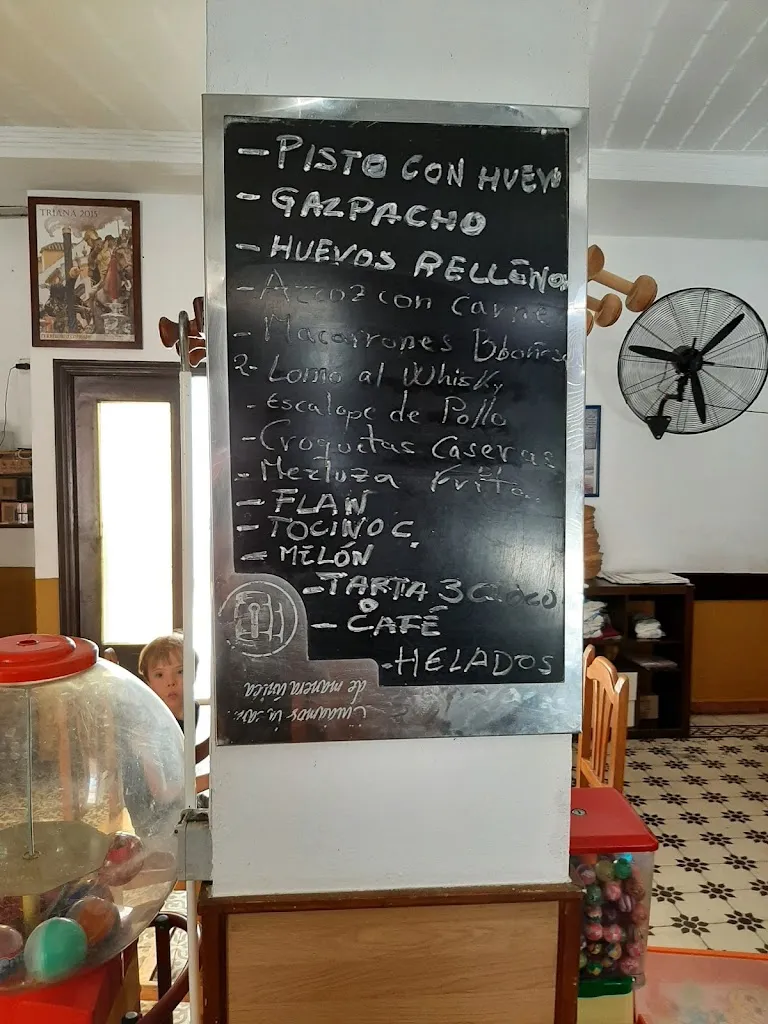 TRIANA 2015
- PISTO CON HUEVO
- GAZPACHO
- HUEVOS RELLENO
- Arroz con Carne
- Macarrones
2- Lomo al Whisky
- Escalope de Pollo
- Croquetas Caseras
- Merluza Frita
- FLAN
- TOCINO C.
- MELÓN
- TARTA 3 CHOCO
o
- CAFÉ
- HELADOS
de manera única
Cuidamos